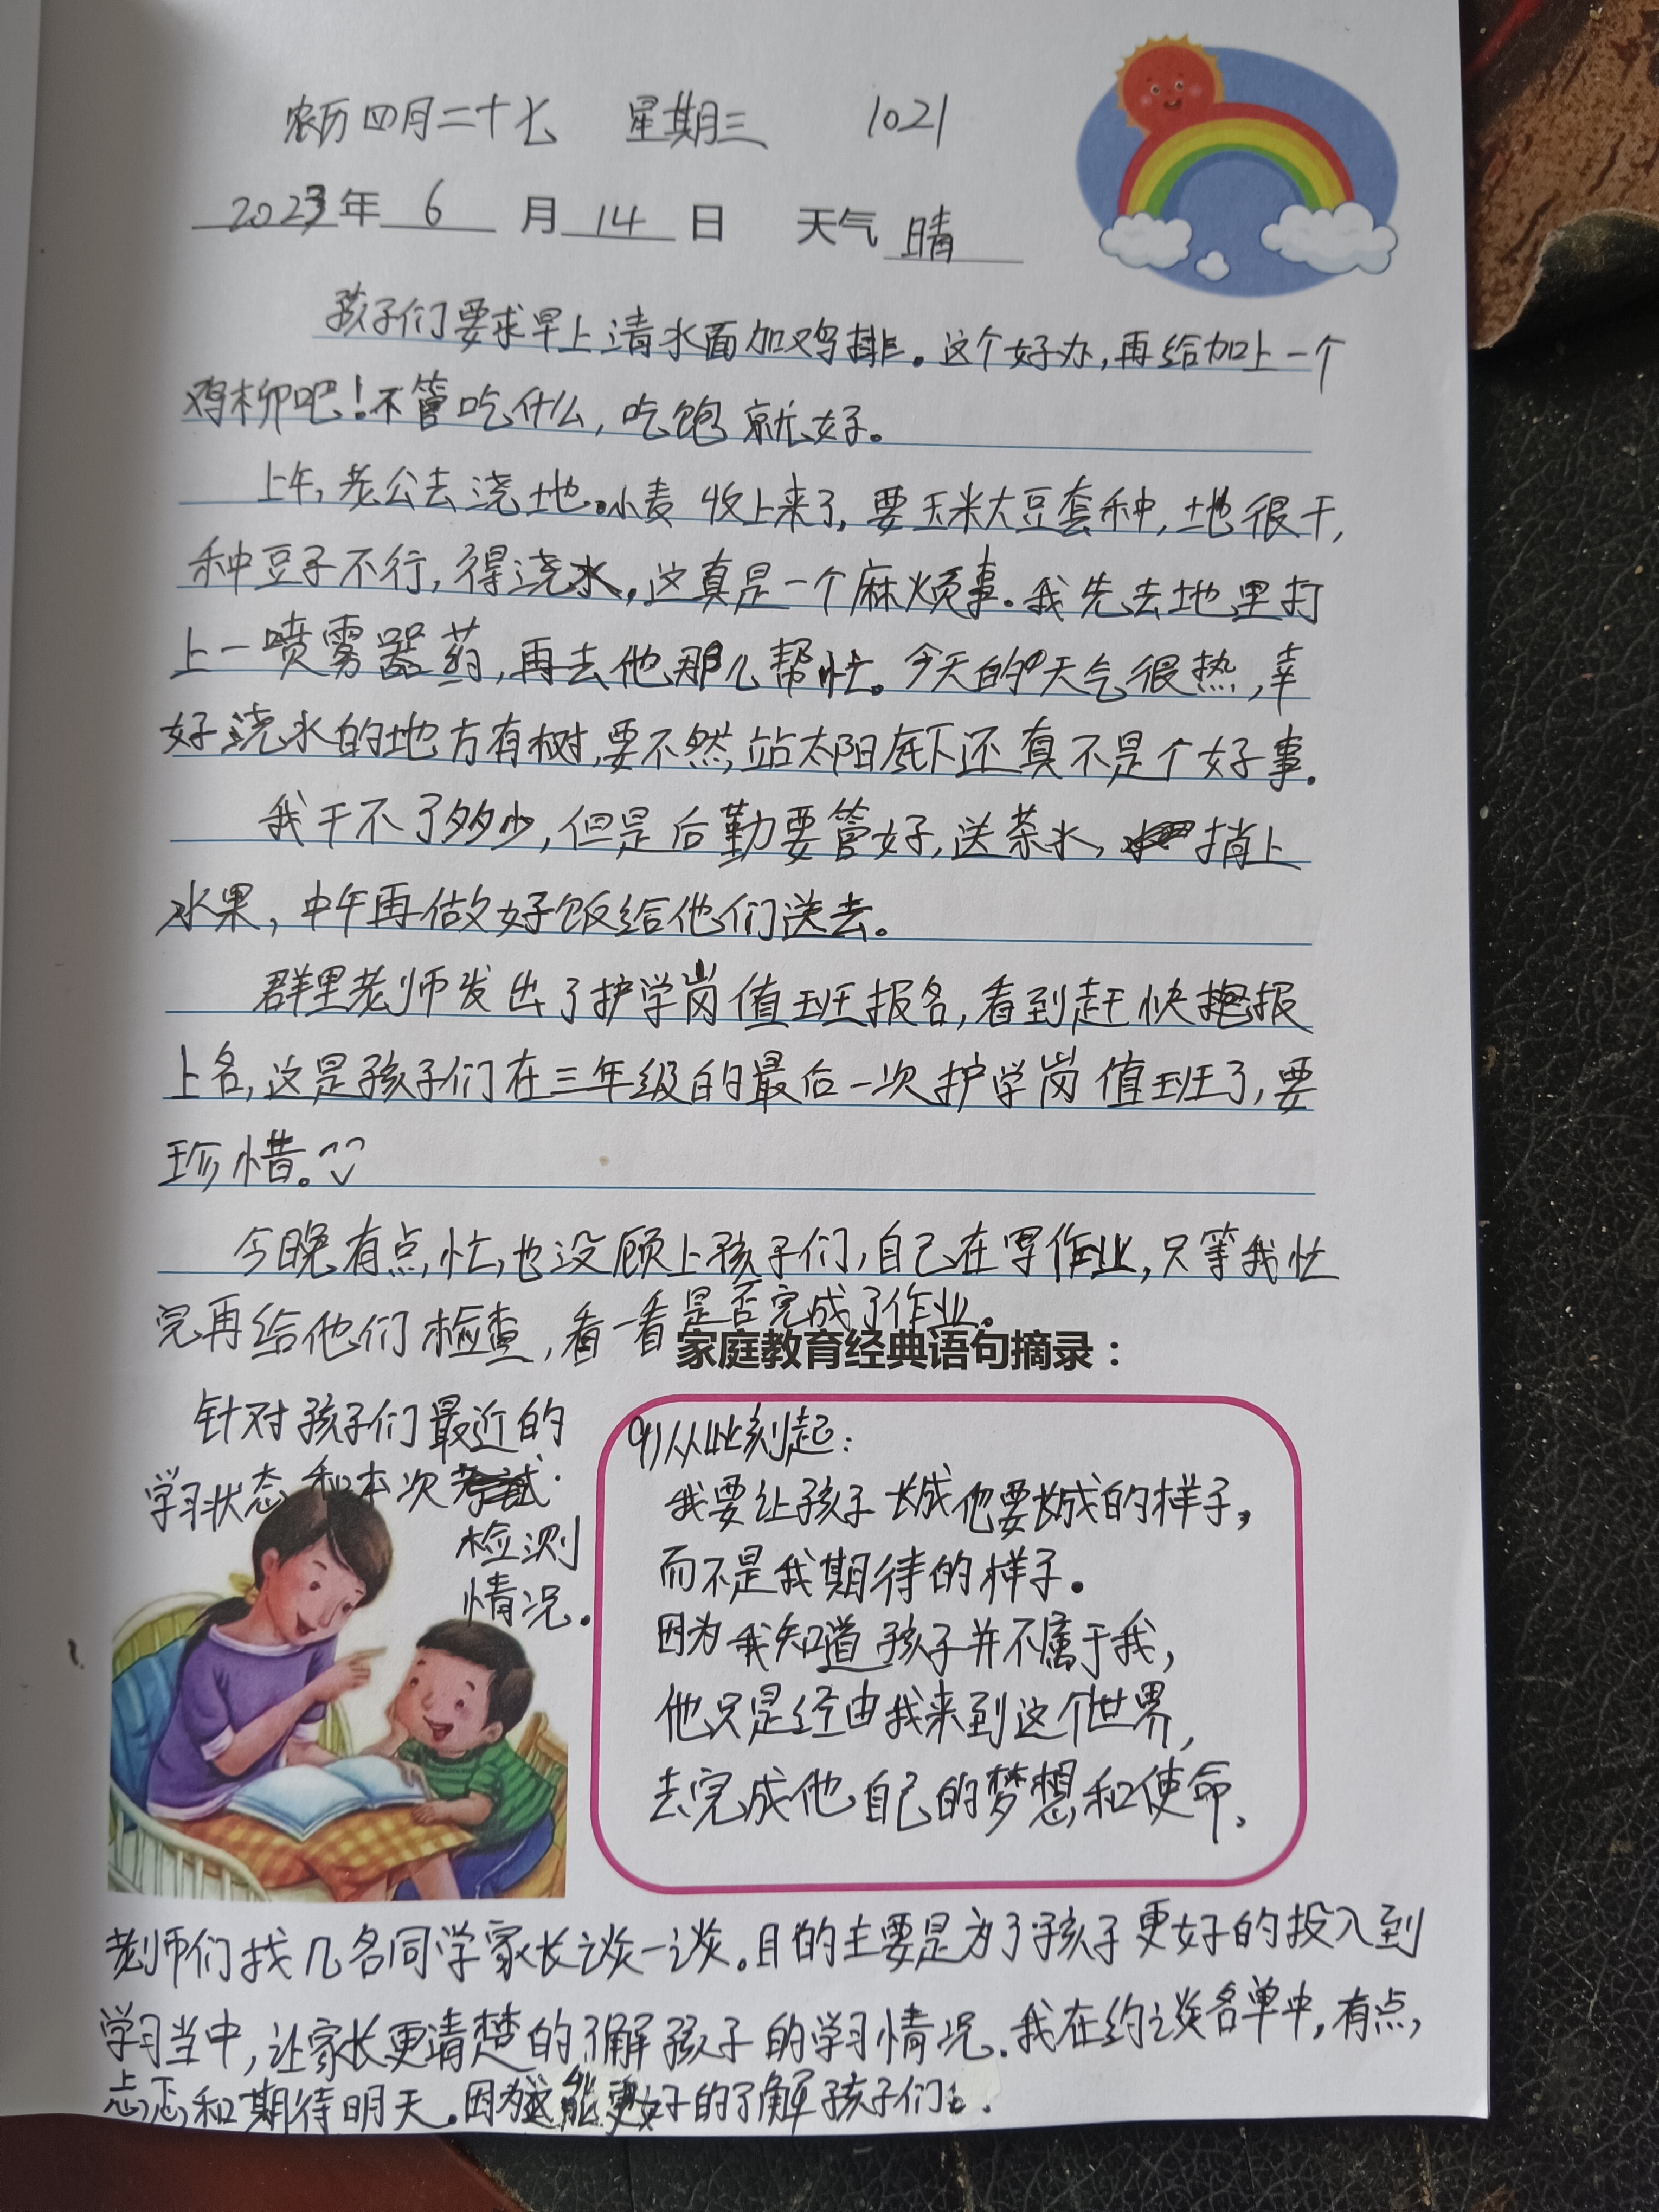 农历四月二十七 星期三 1021
2023年 6 月 14 日 天气 晴
孩子们要求早上清水面加鸡排。这个好办,再给加上一个
鸡柳吧!不管吃什么,吃饱就好。
上午,老公去浇地。小麦收上来了,要玉米大豆套种,地很干,
种豆子不行,得浇水。这真是一个麻烦事。我先去地里打
上一喷雾器药,再去他那儿帮忙。今天的天气很热,幸
好浇水的地方有树,要不然,站太阳底下还真不是个好事。
我干不了多少,但是后勤要管好,送茶水,捎上
水果,中午再做好饭给他们送去。
群里老师发出了护学岗值班报名,看到赶快报
上名,这是孩子们在三年级的最后一次护学岗值班了,要
珍惜。
今晚有点忙,也没顾上孩子们,自己在写作业,只等我忙
完再给他们检查,看一看是否完成了作业。
家庭教育经典语句摘录:
针对孩子们最近的
学习状态和本次
检测
情况。
91)从此刻起:
我要让孩子长成他要长成的样子,
而不是我期待的样子。
因为我知道孩子并不属于我,
他只是经由我来到这个世界,
去完成他自己的梦想和使命。
老师们找几名同学家长谈一谈。目的主要是为了孩子更好的投入到
学习当中,让家长更清楚的了解孩子的学习情况。我在约谈名单中,有点
忐忑和期待明天。因为这能更好的了解孩子们。